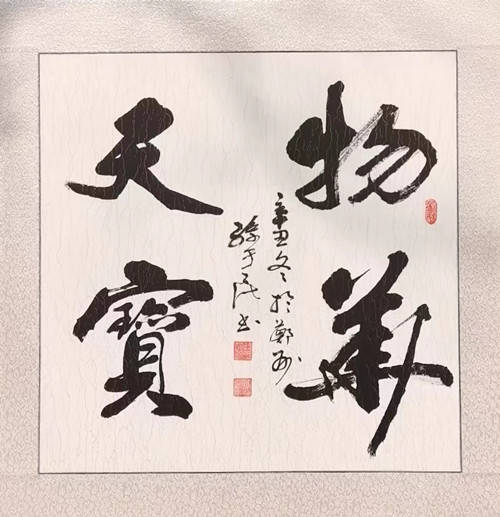 物華
天寶
辛丑冬於鄭州
民書